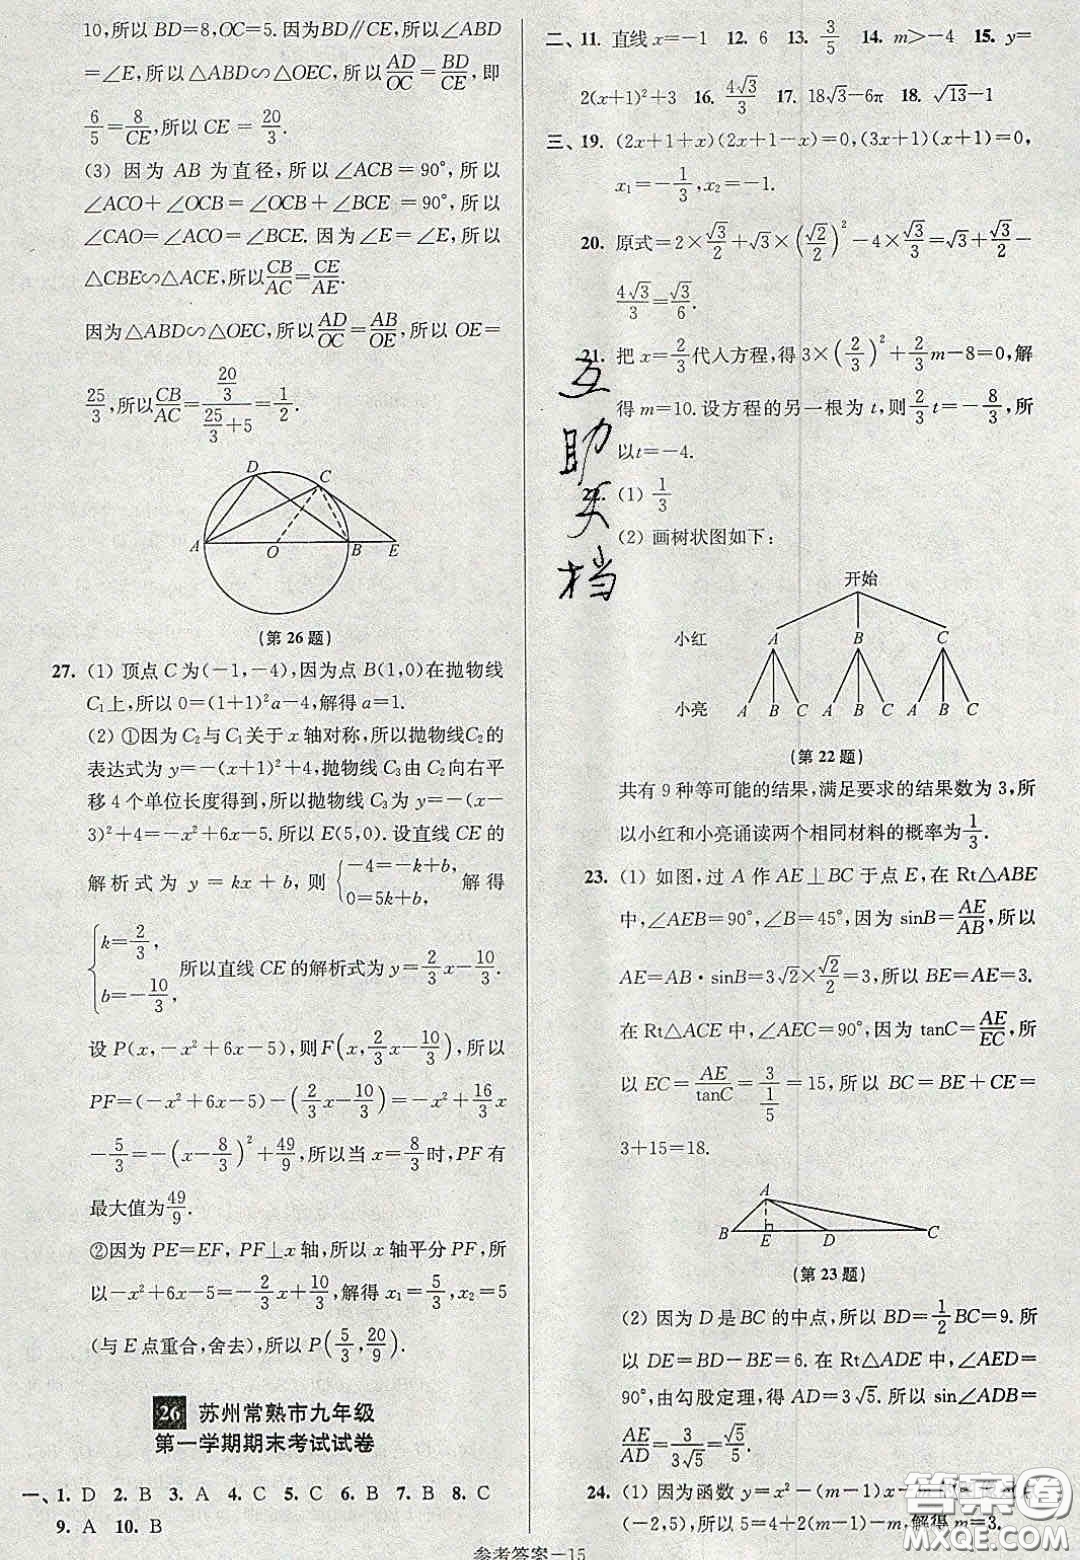 10,所以BD=8,OC=5.因为BD∥CE,所以∠ABD
=∠E,所以△ABD∽△OEC,所以AD/OC=BD/CE,即
6/5=8/CE,所以CE=20/3.
(3) 因为AB为直径,所以∠ACB=90°,所以
∠ACO+∠OCB=∠OCB+∠BCE=90°,所以
∠CAO=∠ACO=∠BCE.因为∠E=∠E,所以
△CBE∽△ACE,所以CB/AC=CE/AE.
因为△ABD∽△OEC,所以AD/OC=AB/OE,所以OE=
25/3,所以CB/AC=(20/3)/(25/3+5)=1/2.
D C A O B E
(第26题)
27. (1) 顶点C为(-1,-4),因为点B(1,0)在抛物线
C₁上,所以0=(1+1)²a-4,解得a=1.
(2) ①因为C₂与C₁关于x轴对称,所以抛物线C₂的
表达式为y=-(x+1)²+4,抛物线C₃由C₂向右平
移4个单位长度得到,所以抛物线C₃为y=-(x-
3)²+4=-x²+6x-5.所以E(5,0).设直线CE的
解析式为y=kx+b,则{-4=-k+b, 0=5k+b,解得
{k=2/3, b=-10/3,所以直线CE的解析式为y=2/3x-10/3.
设P(x,-x²+6x-5),则F(x,2/3x-10/3),所以
PF=(-x²+6x-5)-(2/3x-10/3)=-x²+16/3x
-5/3=-(x-8/3)²+49/9,所以当x=8/3时,PF有
最大值为49/9.
②因为PE=EF,PF⊥x轴,所以x轴平分PF,所
以-x²+6x-5=-2/3x+10/3,解得x₁=5/3,x₂=5
(与E点重合,舍去),所以P(5/3,20/9).
26 苏州常熟市九年级
第一学期期末考试试卷
一、1. D 2. B 3. A 4. C 5. C 6. B 7. B 8. C
9. A 10. B
二、11. 直线x=-1 12. 6 13. 3/5 14. m>-4 15. y=
2(x+1)²+3 16. 4√3/3 17. 18√3-6π 18. √13-1
三、19. (2x+1+x)(2x+1-x)=0,(3x+1)(x+1)=0,
x₁=-1/3,x₂=-1.
20. 原式=2×√3/2+√3×(√2/2)²-4×√3/3=√3+√3/2-
4√3/3=√3/6.
21. 把x=2/3代人方程,得3×(2/3)²+2/3m-8=0,解
得m=10.设方程的另一根为t,则2/3t=-8/3,所
以t=-4.
22. (1) 1/3
(2) 画树状图如下:
开始
小红 A B C
小亮 A B C A B C A B C
(第22题)
共有9种等可能的结果,满足要求的结果数为3,所
以小红和小亮诵读两个相同材料的概率为1/3.
23. (1) 如图,过A作AE⊥BC于点E,在Rt△ABE
中,∠AEB=90°,∠B=45°,因为sinB=AE/AB,所以
AE=AB·sinB=3√2×√2/2=3,所以BE=AE=3.
在Rt△ACE中,∠AEC=90°,因为tanC=AE/EC,所
以EC=AE/tanC=3/(1/5)=15,所以BC=BE+CE=
3+15=18.
A B E D C
(第23题)
(2) 因为D是BC的中点,所以BD=1/2BC=9.所
以DE=BD-BE=6.在Rt△ADE中,∠AED=
90°,由勾股定理,得AD=3√5.所以sin∠ADE=
AE/AD=3/(3√5)=√5/5.
24. (1) 因为函数y=x²-(m-1)x-
(-2,5),所以5=4+2(m-1)-m,解得m=3.
参考答案-15
互
助
文
档
答案圈
MXQE.COM